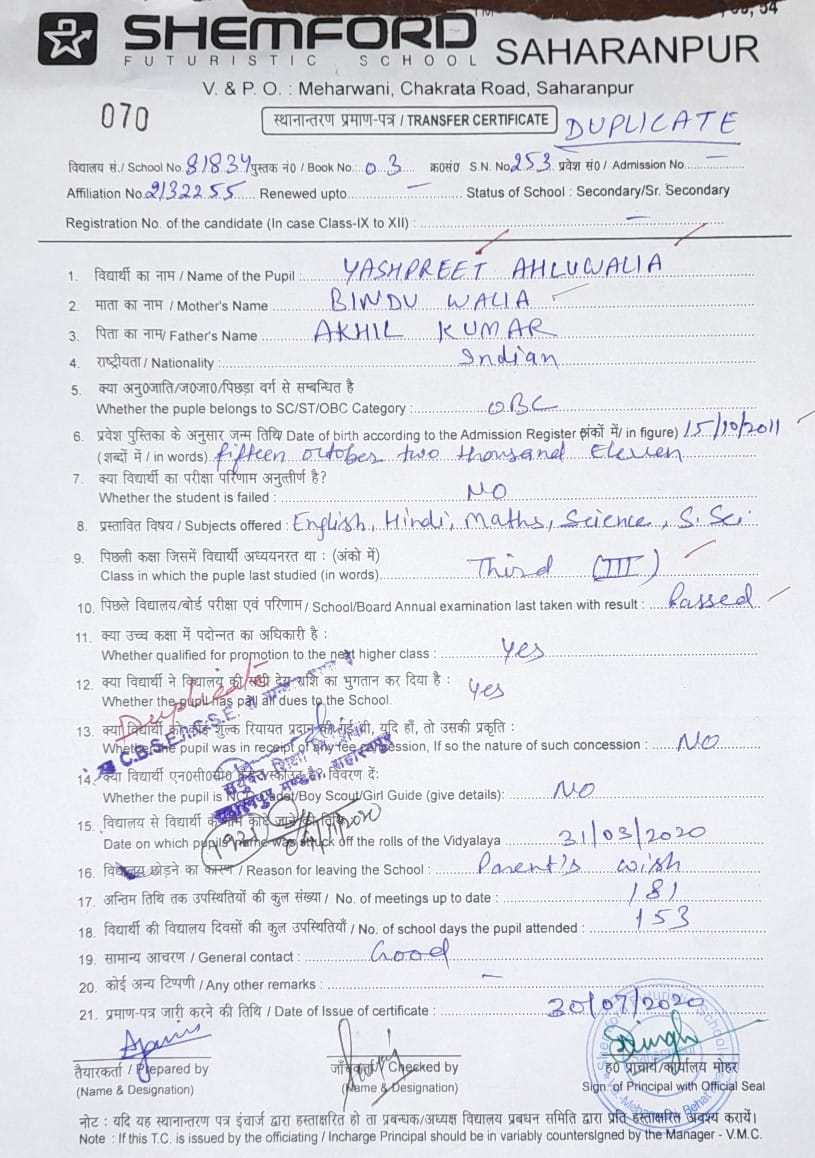 SHEMFORD SAHARANPUR
FUTURISTIC SCHOOL
V. & P. O. : Meharwani, Chakrata Road, Saharanpur
070
स्थानान्तरण प्रमाण-पत्र / TRANSFER CERTIFICATE DUPLICATE
विद्यालय सं./ School No. 81834 पुस्तक नं0 / Book No.: 03 क्र०सं० S.N. No. 253 प्रवेश सं0 / Admission No. —
Affiliation No. 2132255 Renewed upto — Status of School : Secondary/Sr. Secondary
Registration No. of the candidate (In case Class-IX to XII) : —
1. विद्यार्थी का नाम / Name of the Pupil : YASHPREET AHLUWALIA
2. माता का नाम / Mother's Name BINDU WALIA
3. पिता का नाम/ Father's Name AKHIL KUMAR
4. राष्ट्रीयता / Nationality : Indian
5. क्या अनु0जाति/ज0जा0/पिछड़ा वर्ग से सम्बन्धित है
Whether the puple belongs to SC/ST/OBC Category : OBC
6. प्रवेश पुस्तिका के अनुसार जन्म तिथि/ Date of birth according to the Admission Register (अंकों में/ in figure) 15/10/2011
(शब्दों में / in words) fifteen october two thousand Eleven
7. क्या विद्यार्थी का परीक्षा परिणाम अनुत्तीर्ण है?
Whether the student is failed : NO
8. प्रस्तावित विषय / Subjects offered : English, Hindi, Maths, Science, S. Sc.
9. पिछली कक्षा जिसमें विद्यार्थी अध्ययनरत था : (अंको में)
Class in which the puple last studied (in words) Third (III)
10. पिछले विद्यालय/बोर्ड परीक्षा एवं परिणाम / School/Board Annual examination last taken with result : Passed
11. क्या उच्च कक्षा में पदोन्नत का अधिकारी है :
Whether qualified for promotion to the next higher class : Yes
12. क्या विद्यार्थी ने विद्यालय की सभी देय राशि का भुगतान कर दिया है : Yes
Whether the pupil has pay all dues to the School.
Duplicate
13. क्या विद्यार्थी को कोई शुल्क रियायत प्रदान की गई थी, यदि हाँ, तो उसकी प्रकृति :
C.B.S.E.
Whether the pupil was in receipt of any fee concession, If so the nature of such concession : NO
14. क्या विद्यार्थी एन0सी0सी0 कैडेट/स्काउट है? विवरण दें:
Whether the pupil is NCC Cadet/Boy Scout/Girl Guide (give details): NO
15. विद्यालय से विद्यार्थी के नाम काटे जाने की तिथि
Date on which pupil's name was struck off the rolls of the Vidyalaya 31/03/2020
16. विद्यालय छोड़ने का कारण / Reason for leaving the School : Parent's wish
17. अन्तिम तिथि तक उपस्थितियों की कुल संख्या / No. of meetings up to date : 181
18. विद्यार्थी की विद्यालय दिवसों की कुल उपस्थितियाँ / No. of school days the pupil attended : 153
19. सामान्य आचरण / General contact : Good
20. कोई अन्य टिप्पणी / Any other remarks : —
21. प्रमाण-पत्र जारी करने की तिथि / Date of Issue of certificate : 30/07/2020
तैयारकर्ता / Prepared by जाँचकर्ता / Checked by ह० प्राचार्य/कार्यालय मोहर
(Name & Designation) (Name & Designation) Sign. of Principal with Official Seal
नोट : यदि यह स्थानान्तरण पत्र इंचार्ज द्वारा हस्ताक्षरित हो ता प्रबन्धक/अध्यक्ष विद्यालय प्रबधन समिति द्वारा प्रति हस्ताक्षरित अवश्य करायें।
Note : If this T.C. is issued by the officiating / Incharge Principal should be in variably countersigned by the Manager - V.M.C.